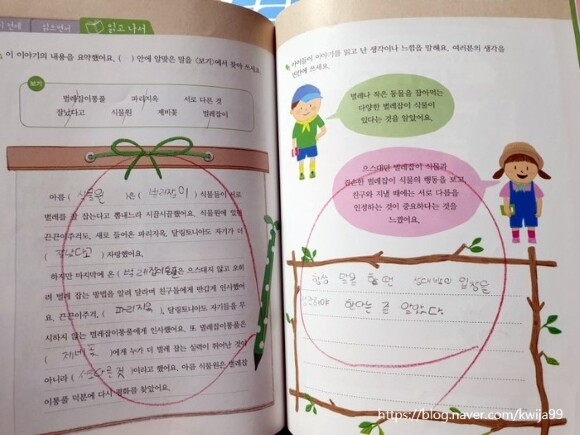 읽으면서
읽고 나서
이 이야기의 내용을 요약했어요. ( ) 안에 알맞은 말을 <보기>에서 찾아 쓰세요.
보기
벌레잡이통풀 파리지옥 서로 다른 것
잘났다고 식물원 제비꽃 벌레잡이
아름 ( 식물원 )은 ( 벌레잡이 ) 식물들이 서로
벌레를 잘 잡는다고 뽐내느라 시끌시끌했어요. 식물원에 있던
끈끈이주걱도, 새로 들어온 파리지옥, 달링토니아도 자기가 더
( 잘났다고 ) 자랑했어요.
하지만 마지막에 온 ( 벌레잡이통풀 )은 으스대지 않고 오히
려 벌레 잡는 방법을 알려 달라며 친구들에게 반갑게 인사했어
요. 끈끈이주걱, ( 파리지옥 ), 달링토니아도 자기들을 무
시하지 않는 벌레잡이통풀에게 인사했어요. 또 벌레잡이통풀은
( 제비꽃 )에게 누가 더 벌레 잡는 실력이 뛰어난 것이
아니라 ( 서로 다른 것 )이라고 했어요. 아름 식물원은 벌레잡
이통풀 덕분에 다시 평화를 찾았어요.
아이들이 이야기를 읽고 난 생각이나 느낌을 말해요. 여러분의 생각을
빈칸에 쓰세요.
벌레나 작은 동물을 잡아먹는
다양한 벌레잡이 식물이
있다는 것을 알았어요.
으스대던 벌레잡이 식물과
겸손한 벌레잡이 식물의 행동을 보고,
친구와 지낼 때에는 서로 다름을
인정하는 것이 중요하다는 것을
느꼈어요.
항상 말을 할 땐 상대방의 입장을
한다는 걸 알았다.
https://blog.naver.com/kwija99